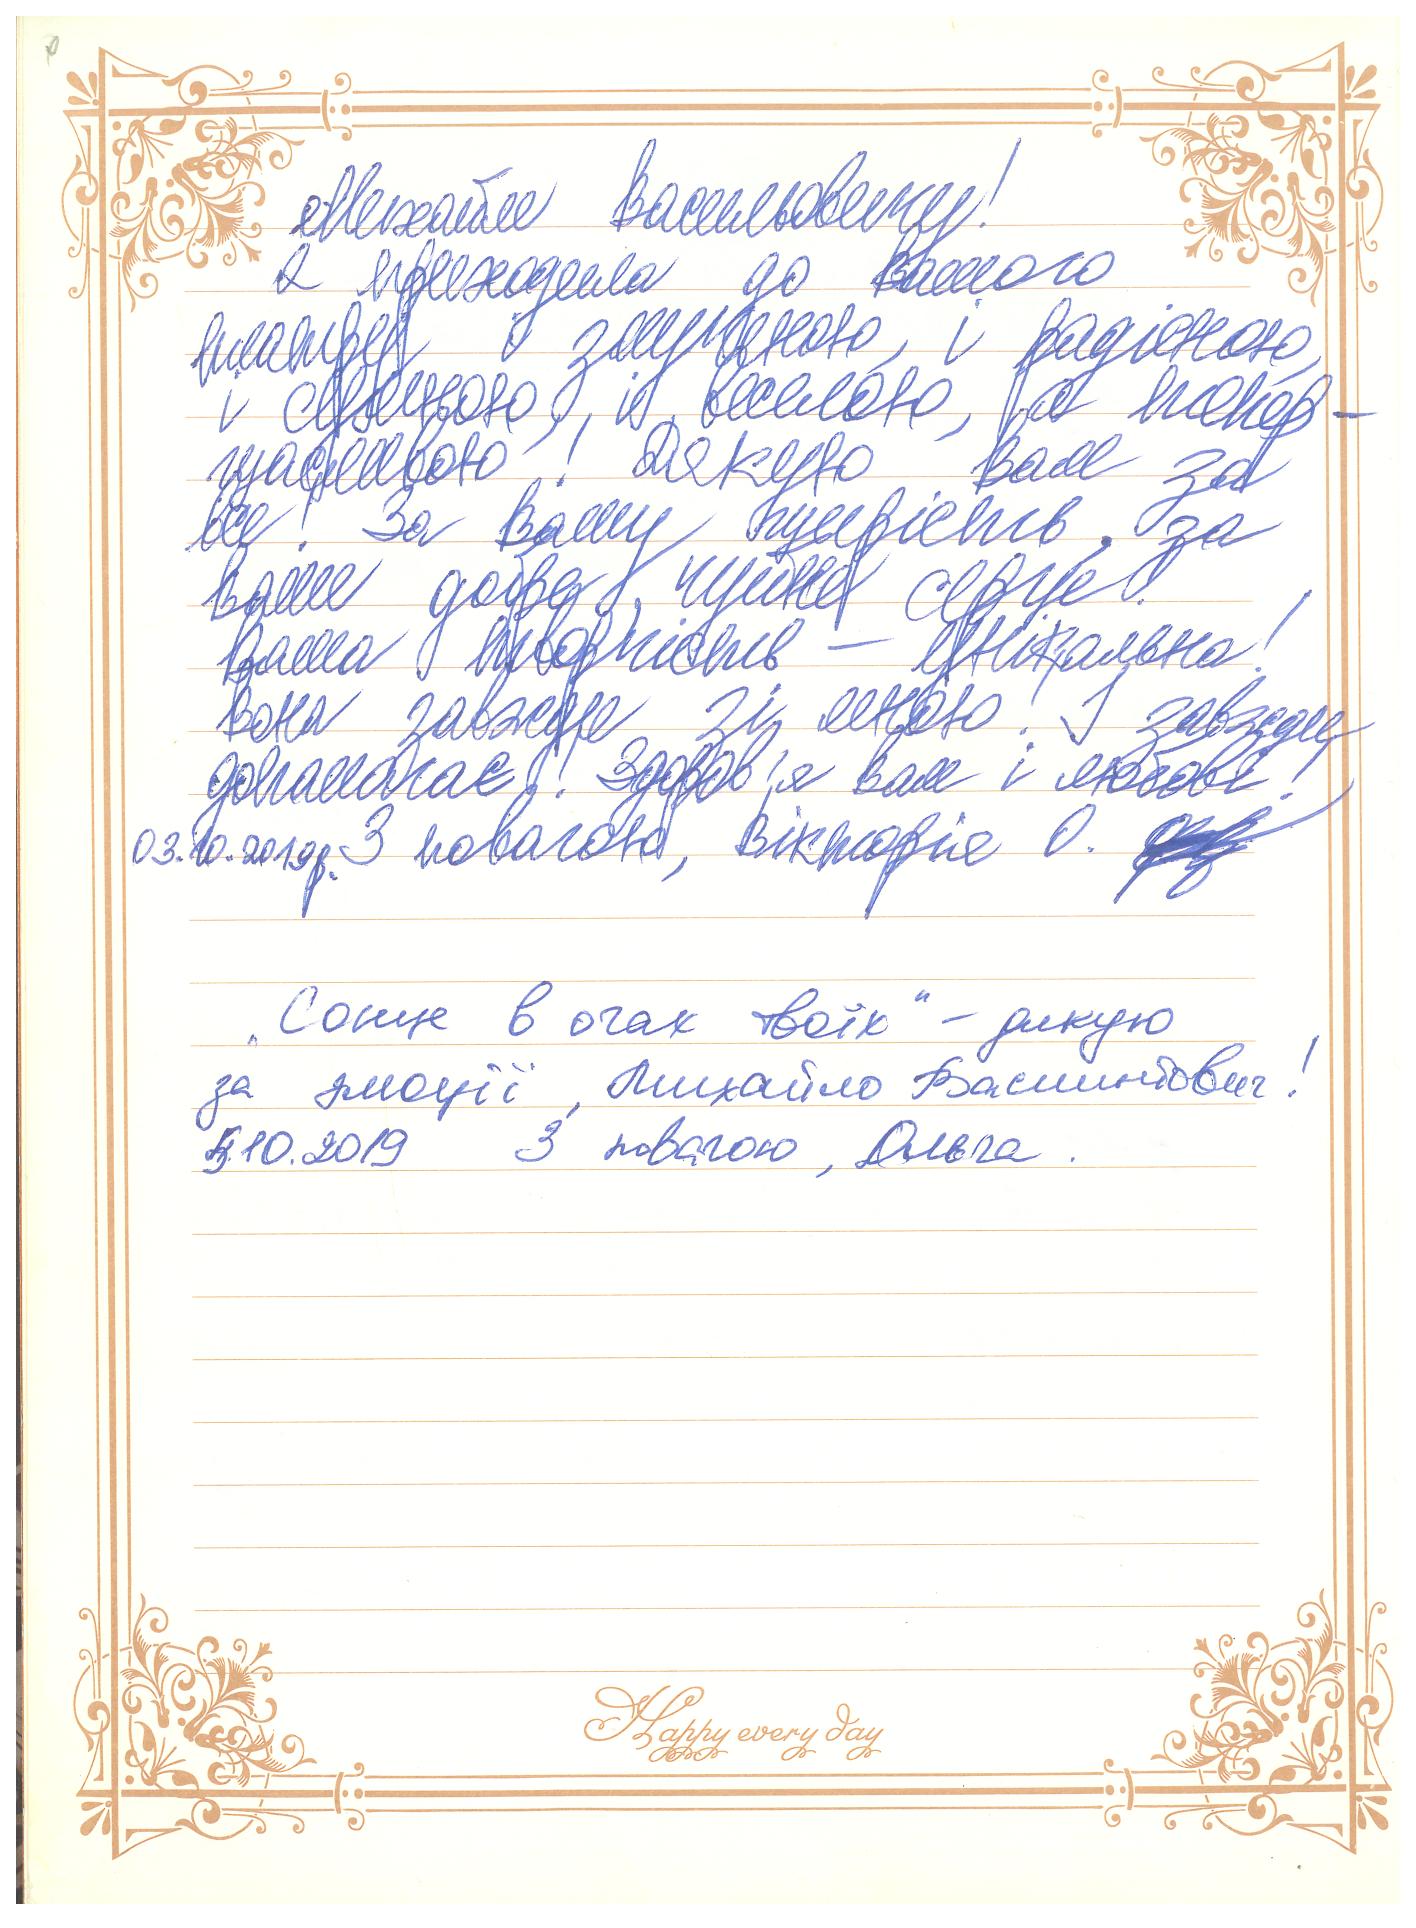 Михайле Васильовичу!
Я приходила до Вашого
театру і змученою, і радісною,
і сумною, і веселою, а тепер –
щасливою! Дякую Вам за
все! За Вашу мудрість, за
Ваше добре, чуйне серце!
Ваша творчість – унікальна!
Вона завжди зі мною! І завжди
допомагає! Здоров'я Вам і любові!
03.10.2019р. З повагою, Вікторія О.
„Сонце в очах твоїх" – дякую
за емоції, Михайло Васильович!
5.10.2019 З повагою, Ольга.
Happy every day